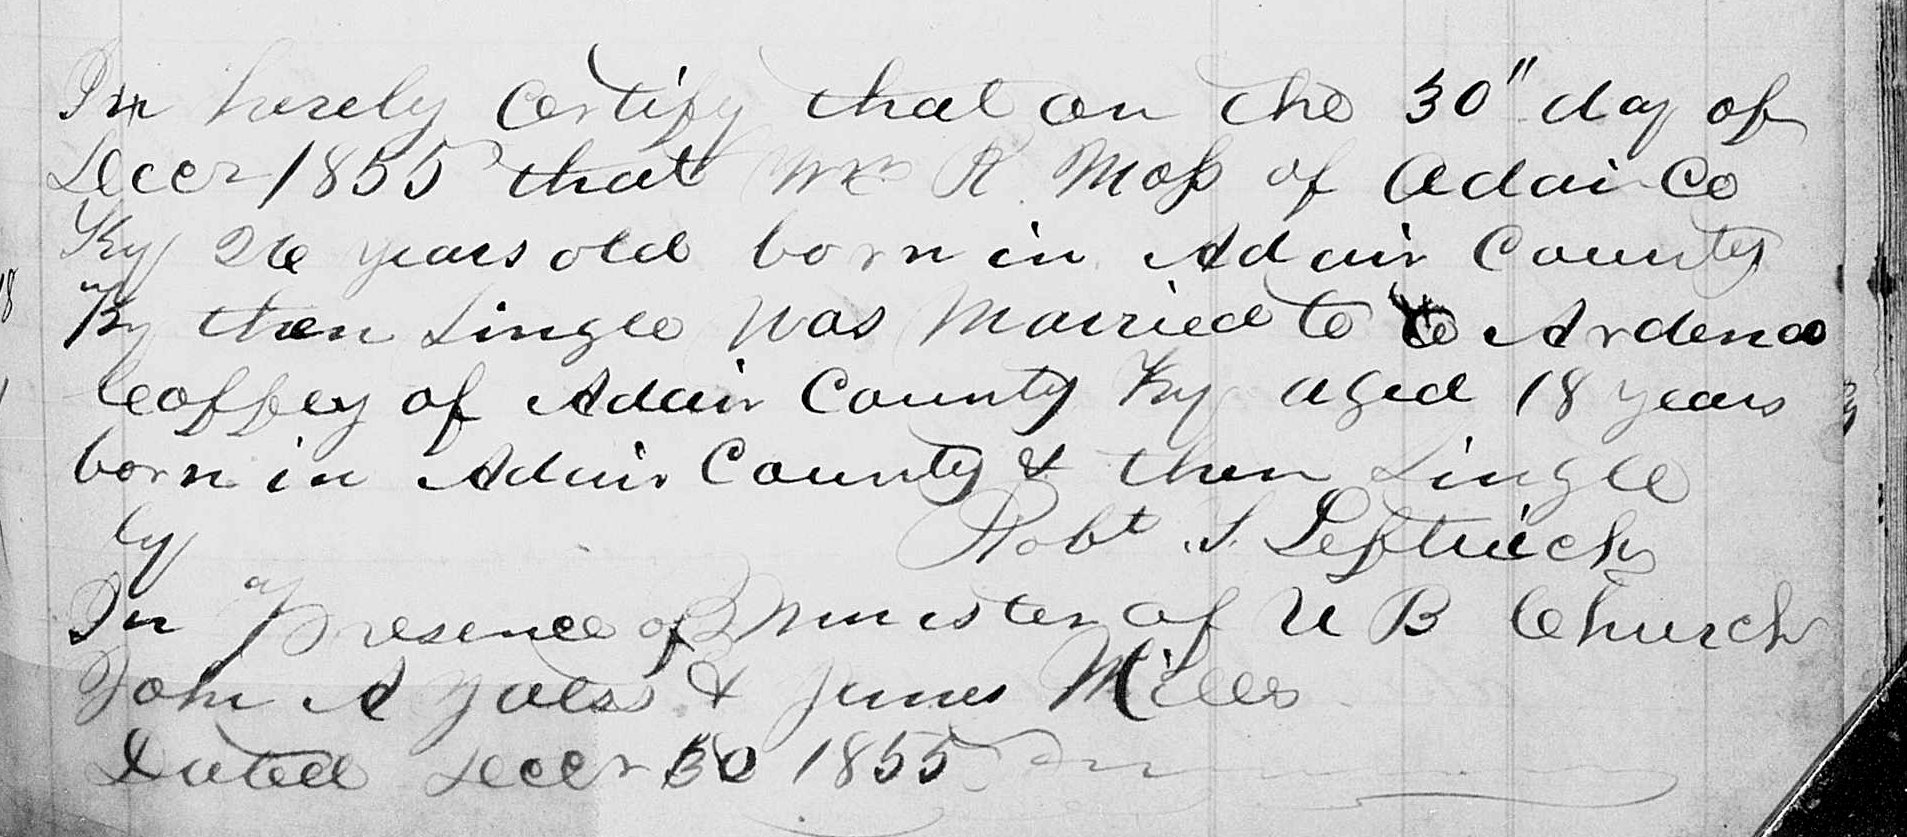 I hereby certify that on the 30" day of
Decer 1855 that Wm R. Moss of Adair Co
Ky 26 years old born in Adair County
Ky then single was married to Ardena
Coffey of Adair County Ky aged 18 years
born in Adair County & then single
by Robt. S. Leftwich
In presence of Minister of U B Church
John A Yates & James Mills
Dated Decer 30 1855